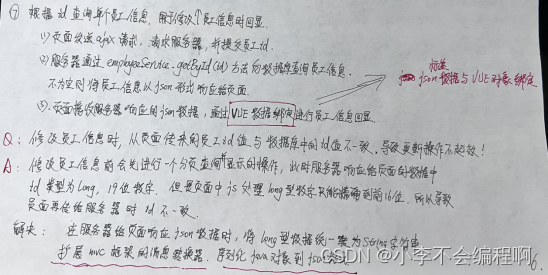 ⑦ 根据 id 查询单个员工信息,用于修改个员工信息时回显.
(1)页面发送ajax请求,请求服务器,并提交员工id.
(2)服务器通过 employeeService.getById(id)方法向数据库查询员工信息.
不为空则将员工信息以json形式响应给页面.
(3).页面接收服务器响应的json数据,通过VUE数据绑定进行员工信息回显.
json数据与VUE对象绑定
Q:修改员工信息时,从页面传来的员工id值与数据库中的id值不一致、导致更新操作不起效!
A:修改员工信息前会先进行一个分页查询并显示的操作,此时服务器响应给页面的数据中
id类型为Long,19位数字.但是页面中js处理long型数字只能精确到前16位,所以导致
页面再传给服务器时id不一致.
解决:在服务器给页面响应json数据时,将long型数据统一装为String字符串
扩展mvc框架的消息转换器.序列化java对象到json
CSDN @小李不会编程啊
6